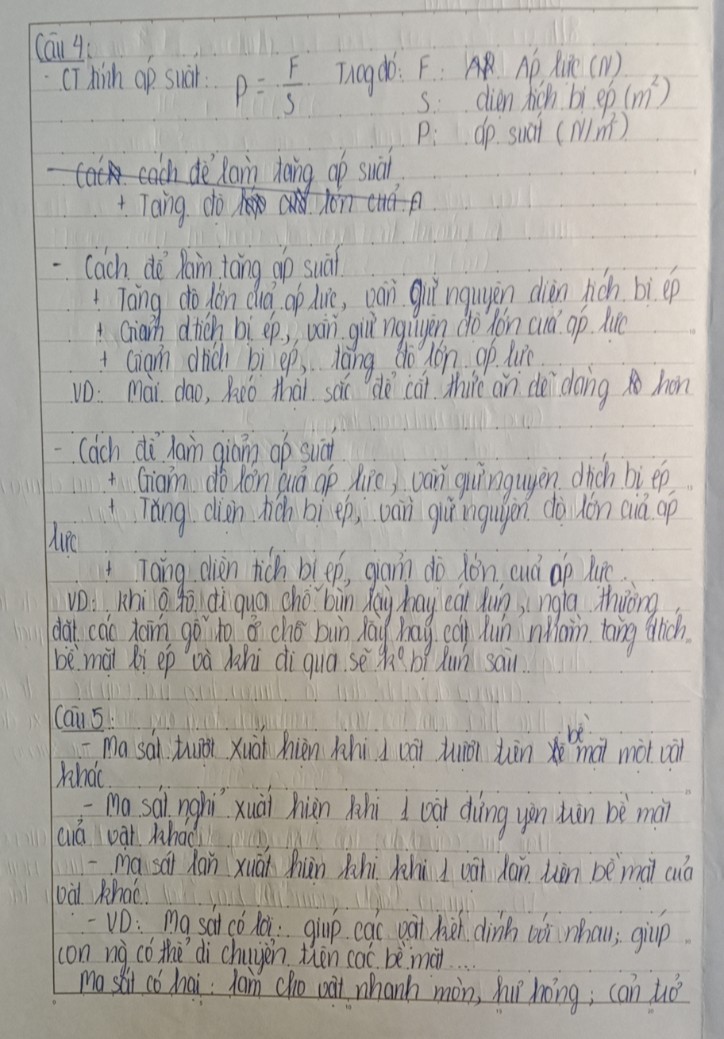 Câu 4:
- CT tính áp suất: P = F/S Trong đó: F: Áp lực (N)
S: diện tích bị ép (m²)
P: áp suất (N/m²)
- Cách cách để làm tăng áp suất
+ Tăng độ lớn của
- Cách để làm tăng áp suất
+ Tăng độ lớn của áp lực, vẫn giữ nguyên diện tích bị ép
+ Giảm d tích bị ép, vẫn giữ nguyên độ lớn của áp lực
+ Giảm d tích bị ép, tăng độ lớn áp lực
VD: Mài dao, kéo thật sắc để cắt thức ăn dễ dàng hơn
- Cách để làm giảm áp suất
+ Giảm độ lớn của áp lực, vẫn giữ nguyên d tích bị ép
+ Tăng diện tích bị ép, vẫn giữ nguyên độ lớn của áp
lực
+ Tăng diện tích bị ép, giảm độ lớn của áp lực
VD: Khi ô tô đi qua chỗ bùn lầy hay cát lún, ngta thường
đặt các tấm gỗ to ở chỗ bùn lầy hay cát lún nhằm tăng d tích
bề mặt bị ép và khi đi qua sẽ ko bị lún sâu.
Câu 5:
- Ma sát trượt xuất hiện khi 1 vật trượt trên bề mặt một vật
khác
- Ma sát nghỉ xuất hiện khi 1 vật đứng yên trên bề mặt
của vật khác
- Ma sát lăn xuất hiện khi khi 1 vật lăn trên bề mặt của
vật khác
- VD: Ma sát có lợi: giúp các vật kết dính với nhau; giúp
con ng có thể di chuyển trên các bề mặt....
Ma sát có hại: làm cho vật nhanh mòn, hư hỏng; cản trở